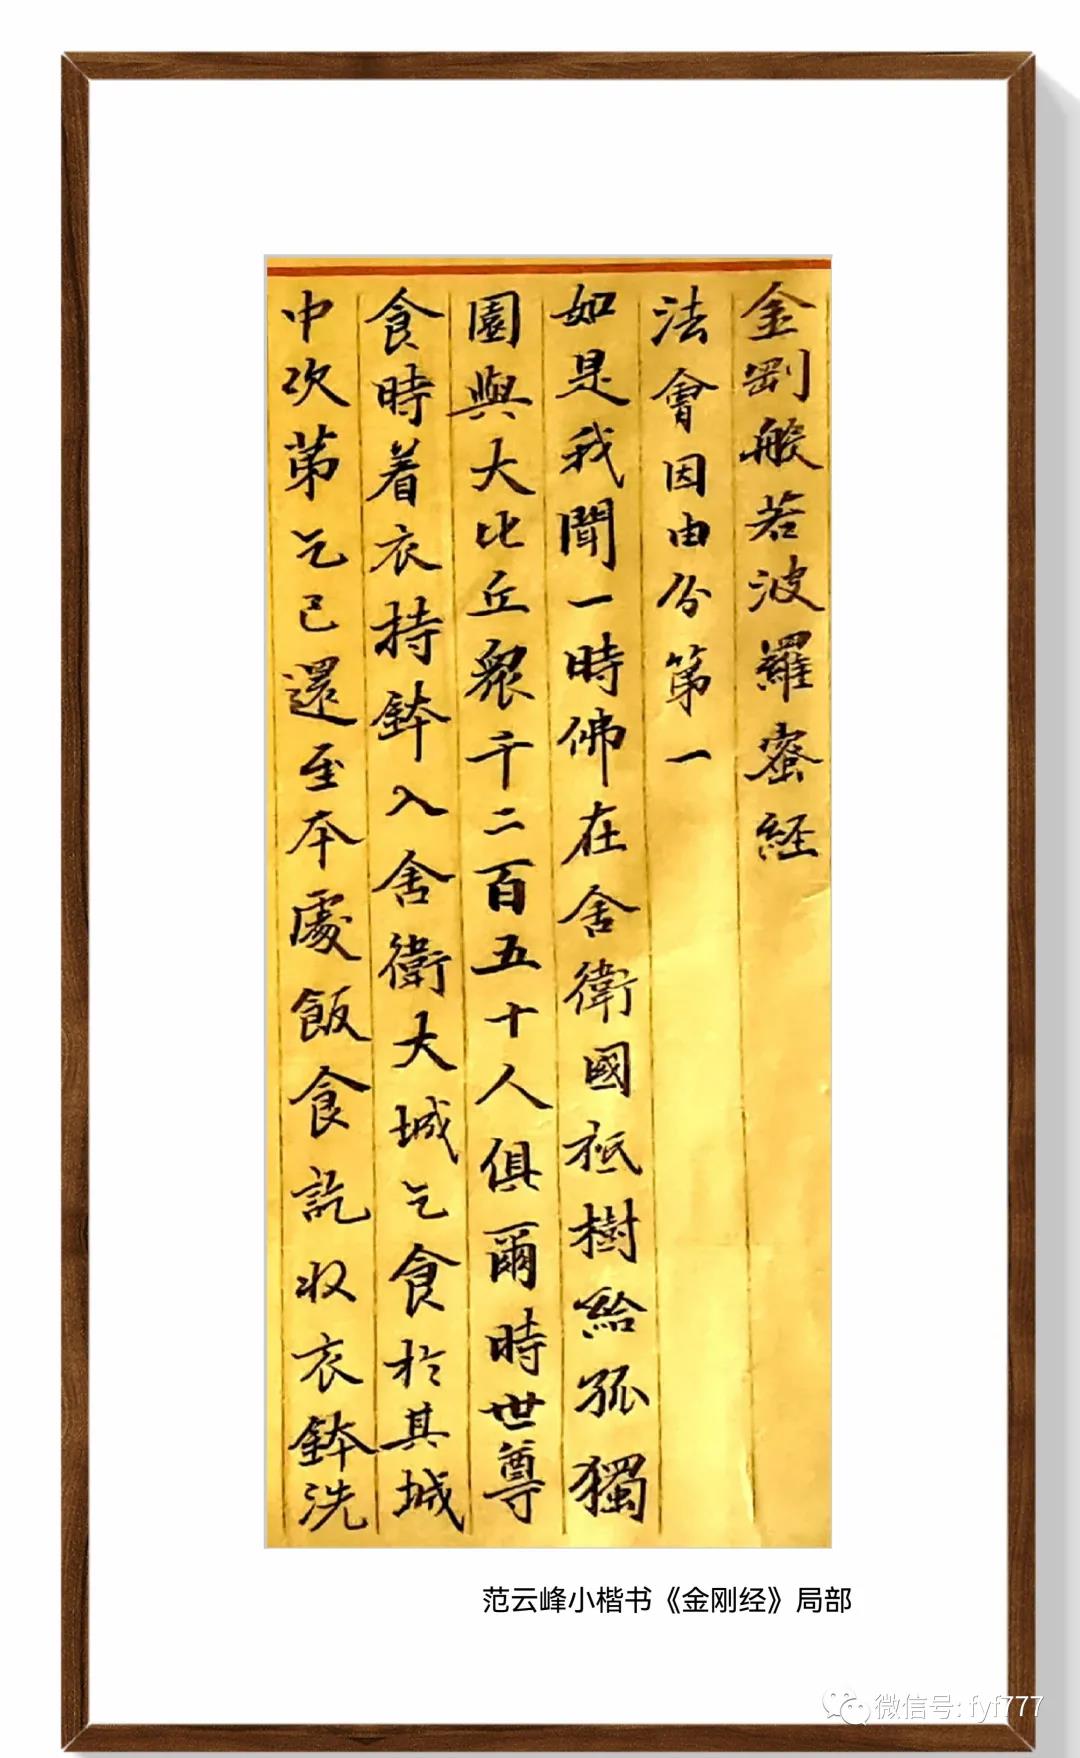 金剛般若波羅蜜經
法會因由分第一
如是我聞一時佛在舍衛國祇樹給孤獨
園與大比丘眾千二百五十人俱爾時世尊
食時着衣持鉢入舍衛大城乞食於其城
中次第乞已還至本處飯食訖收衣鉢洗
范云峰小楷书《金刚经》局部
微信号: fyf777